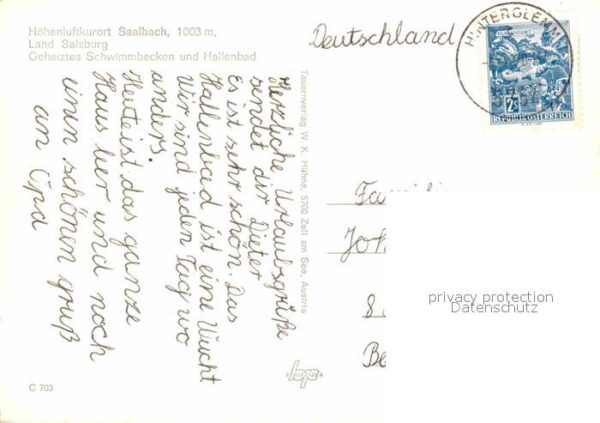 Höhenluftkurort Saalbach, 1003 m,
Land Salzburg
Geheiztes Schwimmbecken und Hallenbad
Deutschland
HINTERGLEMM
2S
REPUBLIK ÖSTERREICH
Herzliche Urlaubsgrüße
sendet dir Dieter
Es ist sehr schön. Das
Hallenbad ist eine Wucht
Wir sind jeden Tag wo
anders.
Heute ist das ganze
Haus leer und noch
einen schönen gruß
an Opa
Tauernverlag W. K. Hühne, 5700 Zell am See, Austria
Fa
Joh
Be
privacy protection
Datenschutz
C 703